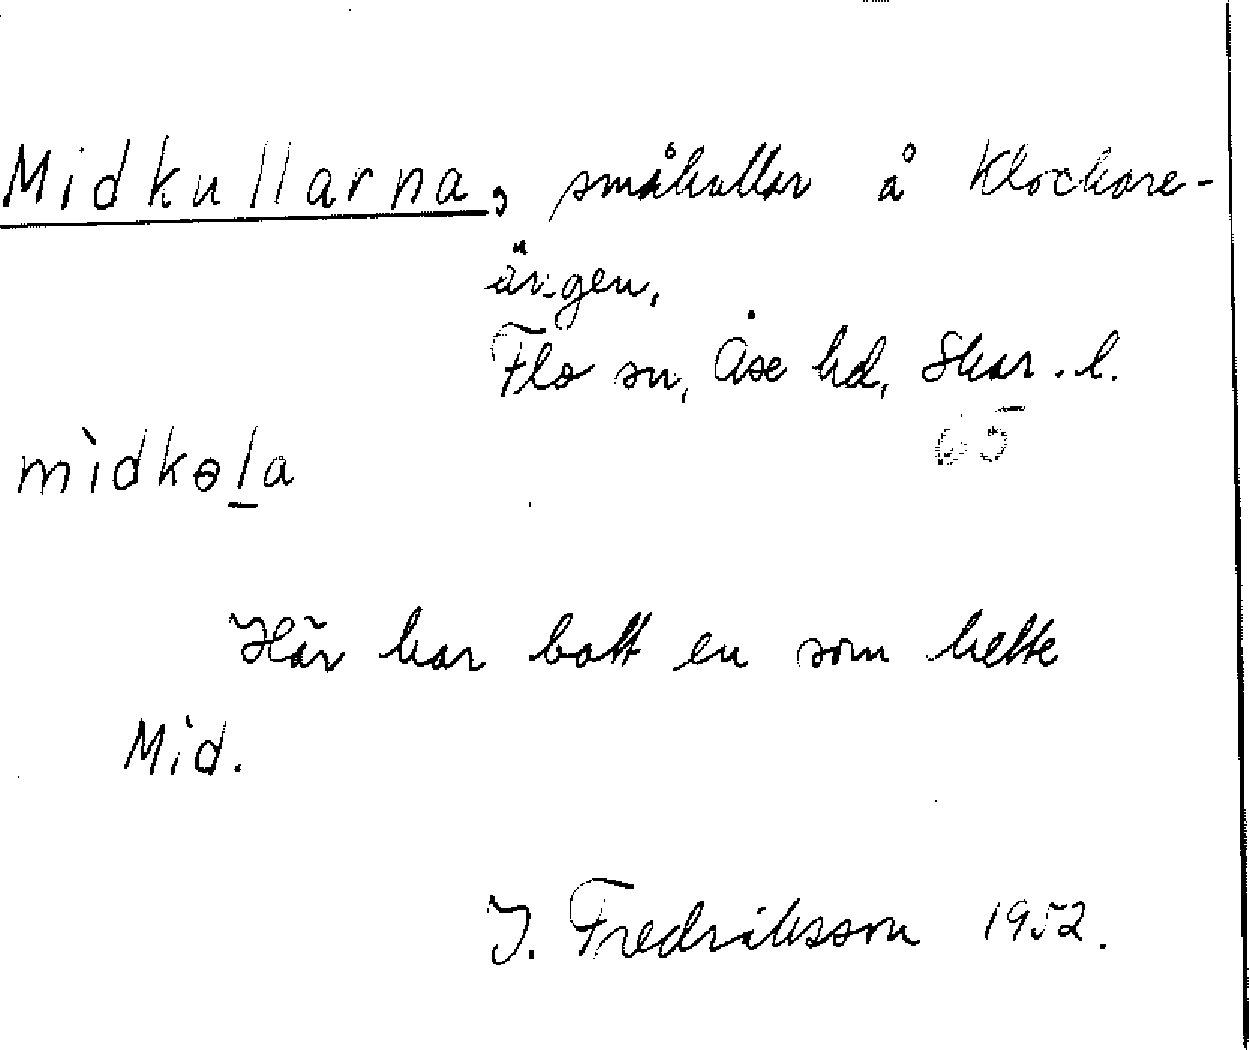 Midkullarna, småkullar å Klockare-
ängen,
Flo sn, Åse hd, Skar. l.
65
mìdkɵla
Här har bott en som hette
Mid.
J. Fredriksson 1952.